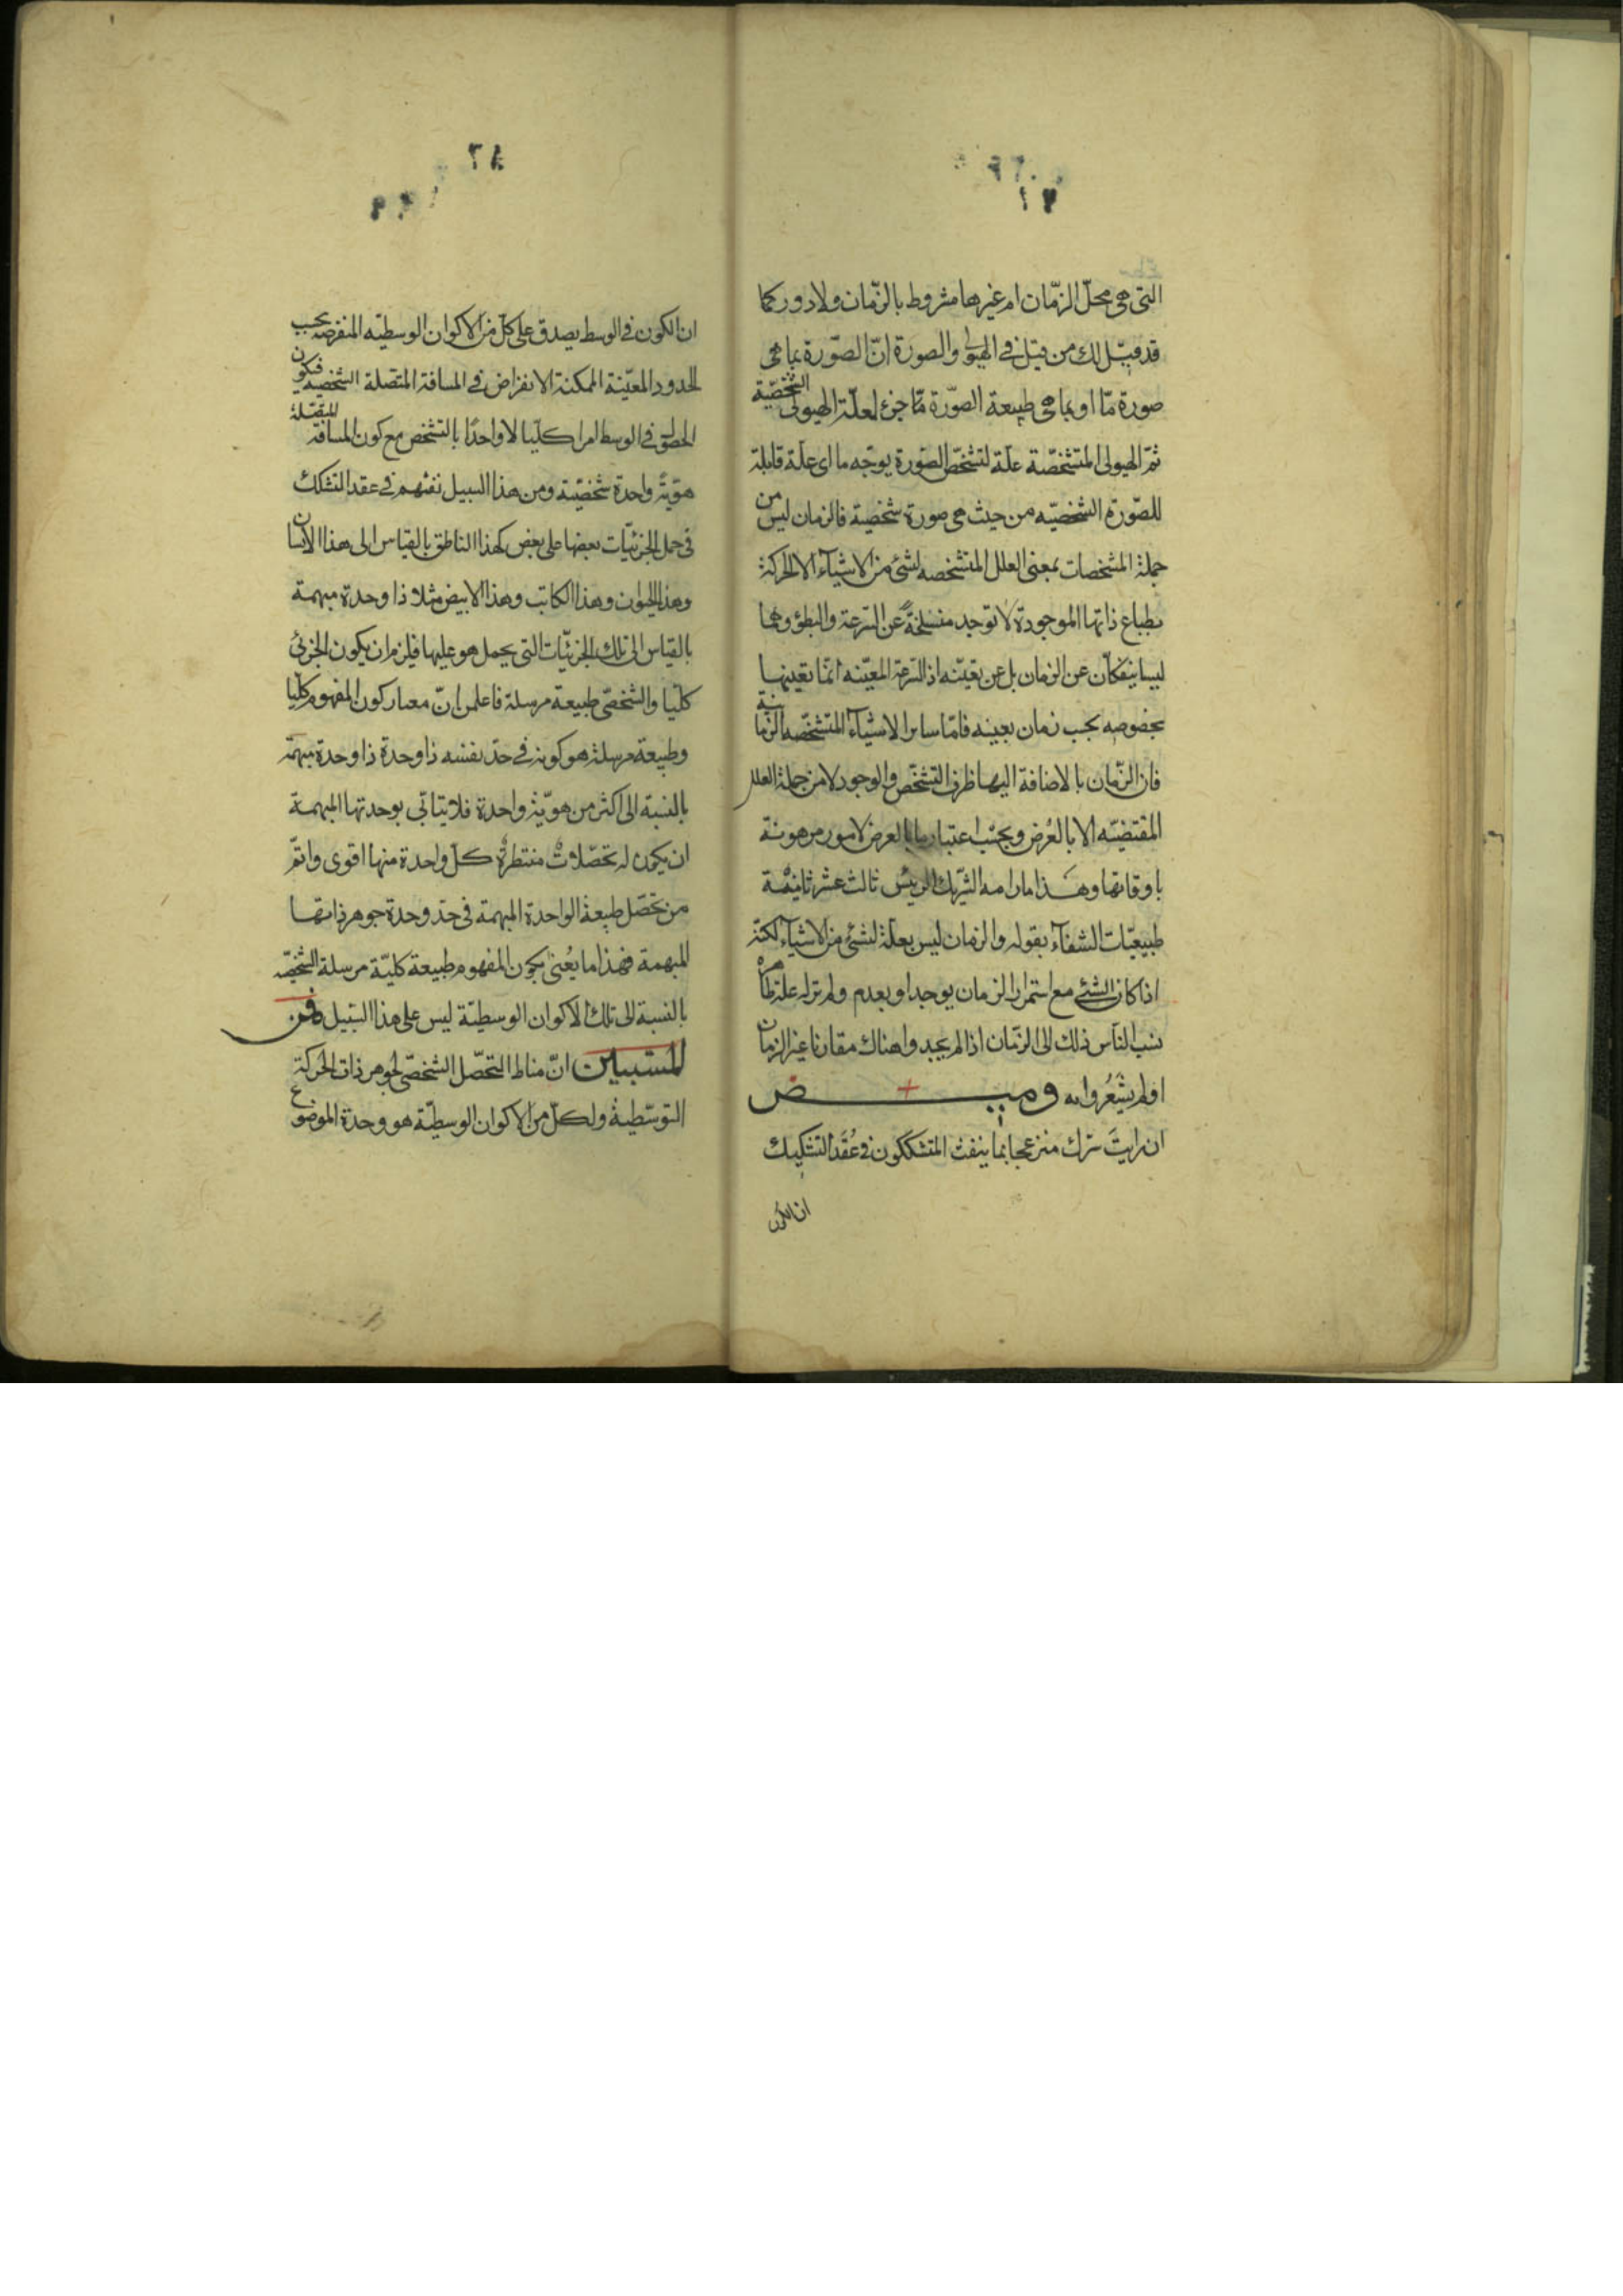 التى هى محلّ الزّمان ام غيرها مشروط بالزّمان ولا دور كما
قد قيل لك من قبل فى الهيولى والصورة انّ الصّورة بما هى
صورة مّا او بما هى طبيعة الصّورة مّا جزء لعلّة الهيولى الشّخصيّة
ثمّ الهيولى المتشخّصة علّة لتشخّص الصّورة بوجه ما اى علّة قابلة
للصّورة الشّخصيّه من حيث هى صورة شخصية فالزمان ليس من
جملة المشخصات بمعنى العلل المتشخصه لشئ من الاشياء الا الحركة
بطباع ذاتها الموجودة لا توجد منسلخةً عن السّرعة والبطؤ وهما
ليسا ينفكّان عن الزمان بل عن تعيّنه اذ السّرعة المعيّنه انّما تعينها
بخصوصه بحسب زمان بعينه فامّا ساير الاشياء المتشخّصه الزّمانيّة
فان الزّمان بالاضافة اليها ظرف التشخّص والوجود لا من جملة العلل
المقتضيّه الا بالعُرض وبحسب اعتبار ما بالعرض لامور مرهونة
باوقاتها وهَذا ما رامه الشّريك الرييس ثالث عشر ثانية
طبيعيّات الشفآء بقوله والزمان ليس بعلّة لشئ من الاشياء لكنّه
اذا كان الشئ مع استمرار الزمان يوجد او يعدم ولم تر له علة ظاهرة
نسب النّاس ذلك الى الزمّان اذا لم يجدوا هناك مقارنا غير الزمان
او لم يشعُروا به ومیـــــض
ان رايتَ سرّك منزعجا بما ينفث المتشككون فى عُقَد التشكيك
ان الكون
ان الكون فى الوسط يصدق على كلّ من الاكوان الوسطيّه المنفرضه بحسب
الحدود المعيّنة الممكنة الانفراض فى المسافة المتّصلة الشخصيه فيكون
الحصول فى الوسط امرا كليّا لا واحدًا بالتشخص مع كون المسافة المتّصلة
هويّة واحدة شخصيّة ومن هذا السبيل نفثهم فى عقد التشكك
فى حمل الجزئيّات بعضها على بعض كهذا الناطق بالقياس الى هذا الانسان
وهذا الحيوان وهذا الكاتب وهذا الابيض مثلا ذا وحدة مبهمة
بالقياس الى تلك الجزئيّات التى يحمل هو عليها فيلزم ان يكون الجزئى
كليّا والشخصّى طبيعة مرسلة فاعلمن انّ معيار كون المفهوم كليّا
وطبيعة مرسلة هو كونه فى حدّ نفسه ذا وحدة ذا وحدة مبهمة
بالنسبة الى اكثر من هويّة واحدة فلا يتابّى بوحدتها المبهمة
ان يكون له تحصّلاتٌ منتظرةٌ كلّ واحدة منها اقوى واتمّ
من تحصّل طبيعة الواحدة المبهمة فى حدّ وحدة جوهر ذاتها
المبهمة فهذا ما يُعنى بكون المفهوم طبيعة كليّة مرسلة الشخصيّه
بالنسبة الى تلك الاكوان الوسطيّة ليس على هذا السّبيل
المستبين انّ مناط التحصّل الشخصّى لجوهر ذات الحركة
التوسّطية ولكلّ من الاكوان الوسطيّة هو وحدة الموضوع